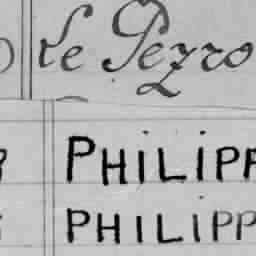 Le Pezro
PHILIPP
PHILIPP